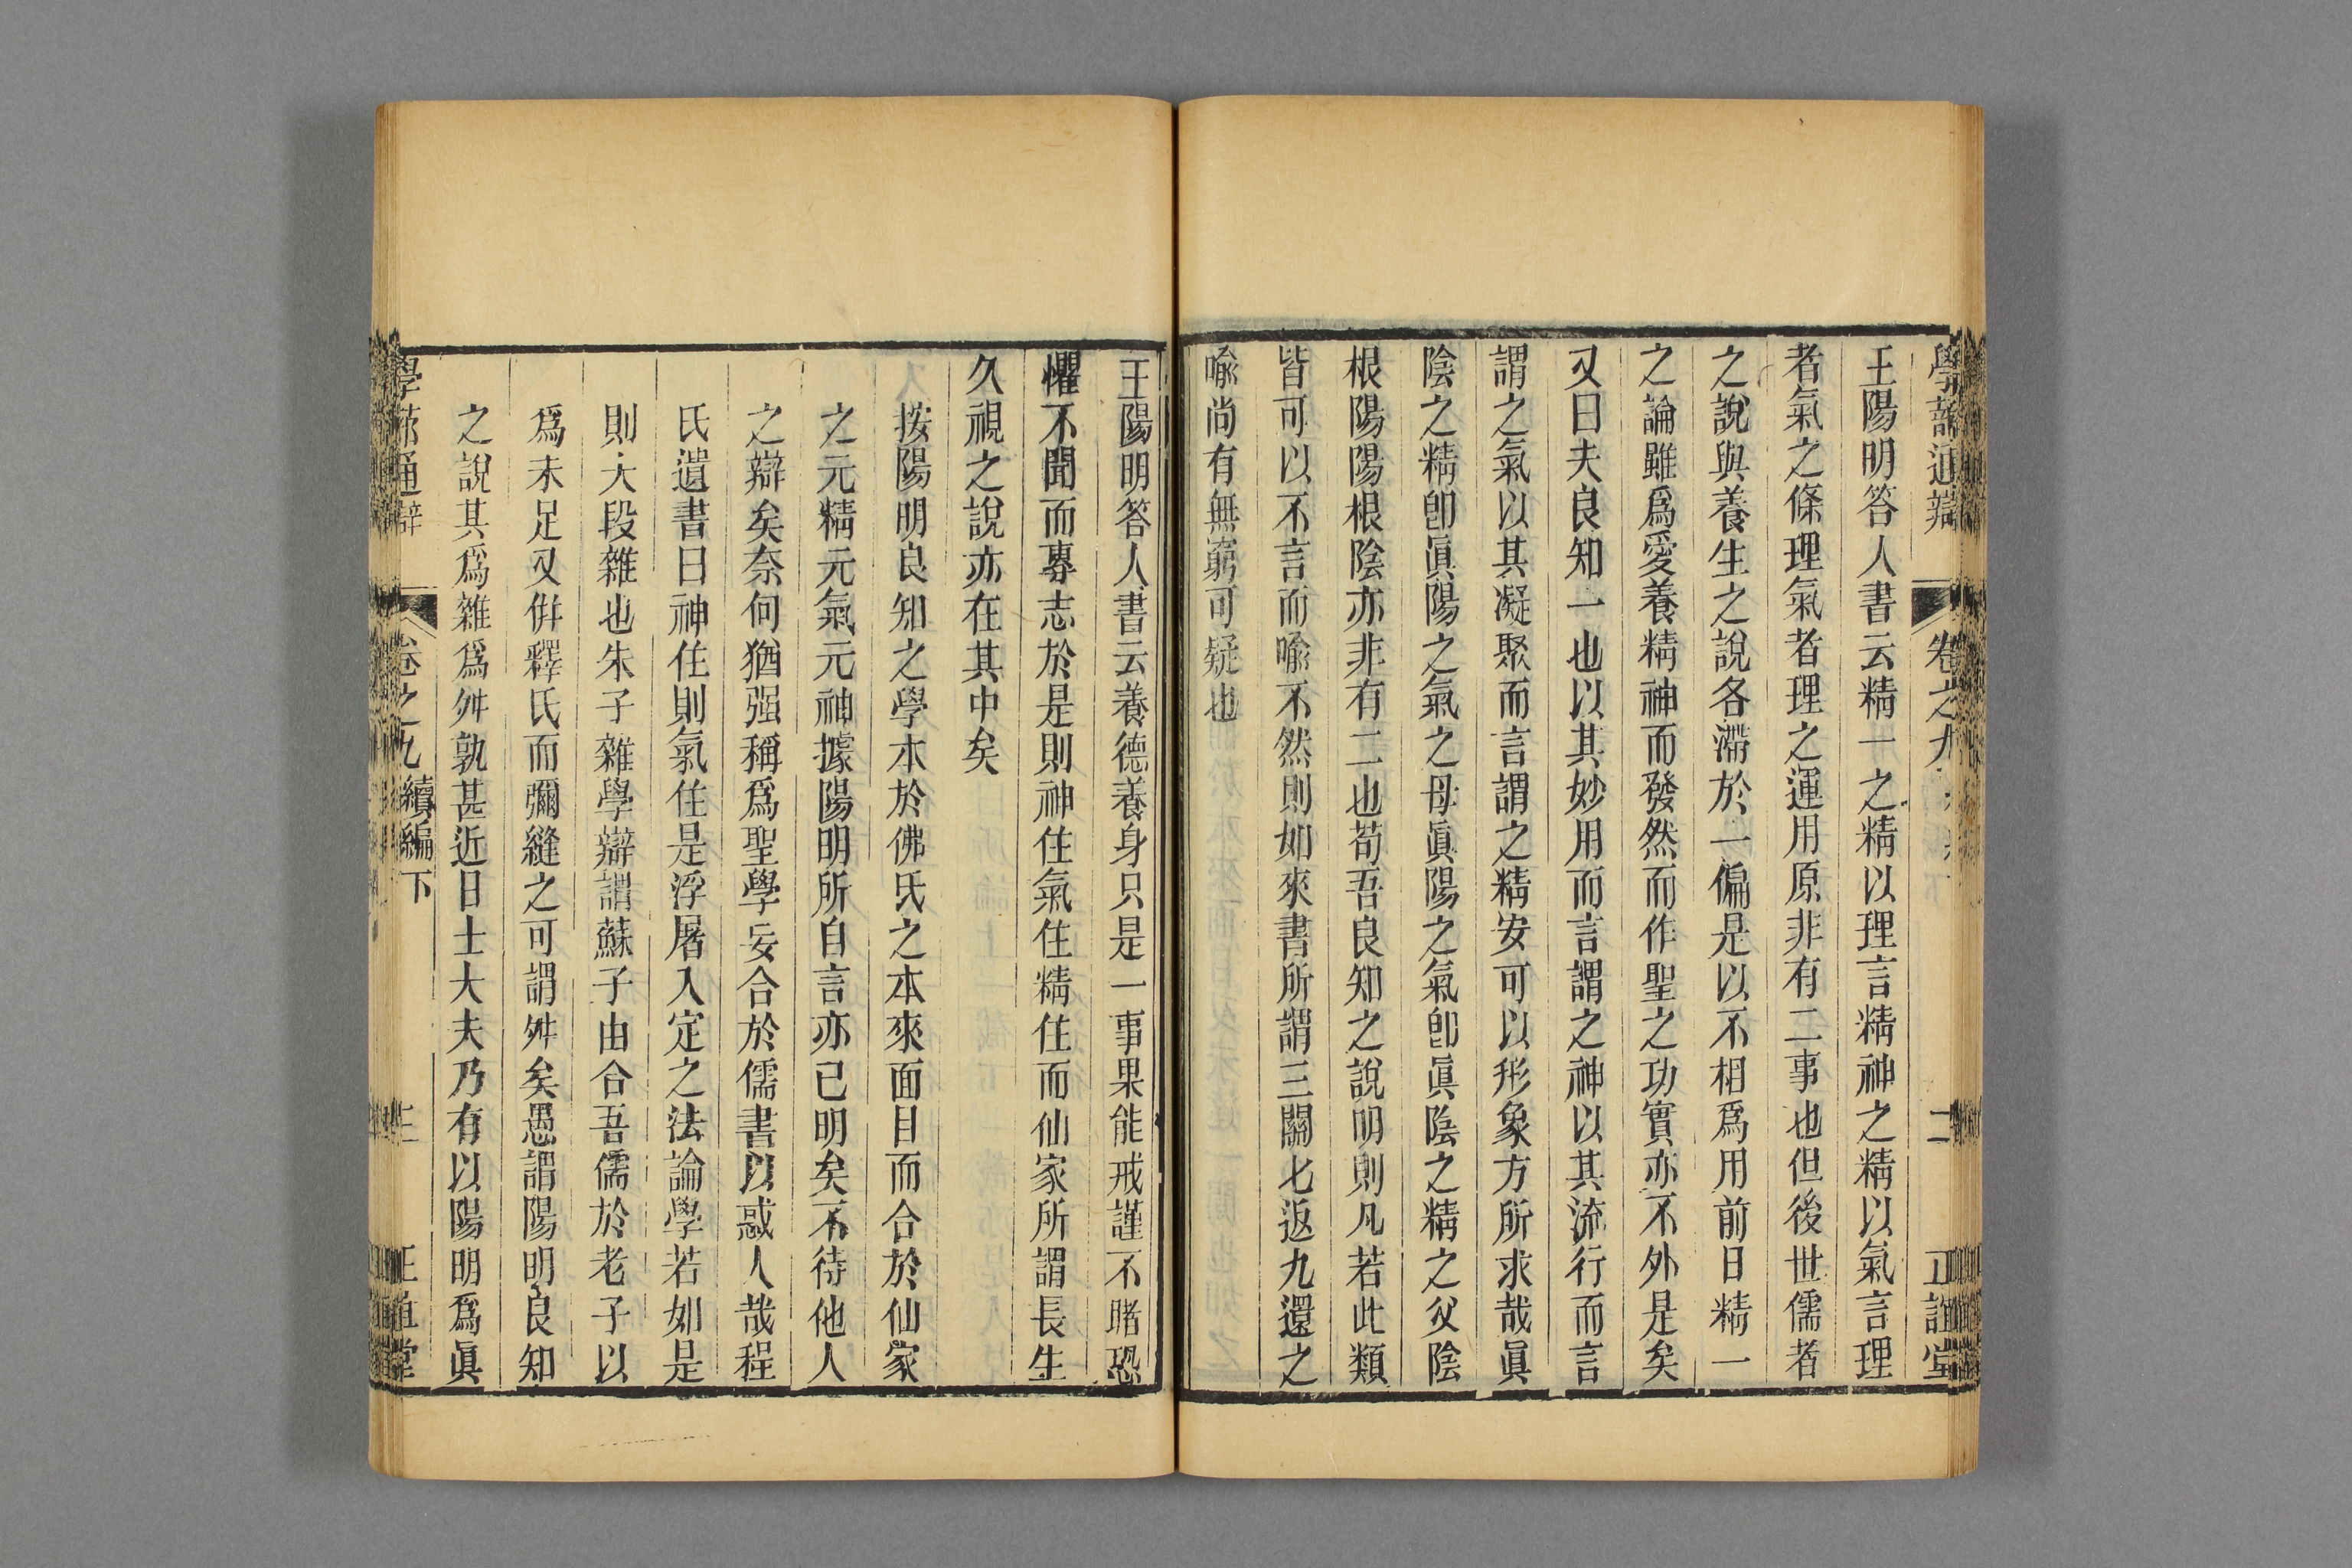 學蔀通辯 卷之九 二 正誼堂
王陽明答人書云精一之精以理言精神之精以氣言理
者氣之條理氣者理之運用原非有二事也但後世儒者
之說與養生之說各滯於一偏是以不相爲用前日精一
之論雖爲愛養精神而發然而作聖之功實亦不外是矣
又曰夫良知一也以其妙用而言謂之神以其流行而言
謂之氣以其凝聚而言謂之精安可以形象方所求哉眞
陰之精卽眞陽之氣之母眞陽之氣卽眞陰之精之父陰
根陽陽根陰亦非有二也苟吾良知之說明則凡若此類
皆可以不言而喻不然則如來書所謂三關七返九還之
喻尚有無窮可疑也
王陽明答人書云養德養身只是一事果能戒謹不睹恐
懼不聞而專志於是則神住氣住精住而仙家所謂長生
久視之說亦在其中矣
按陽明良知之學本於佛氏之本來面目而合於仙家
之元精元氣元神據陽明所自言亦已明矣不待他人
之辯矣奈何猶强稱爲聖學妄合於儒書以惑人哉程
氏遺書曰神住則氣住是浮屠入定之法論學若如是
則大段雜也朱子雜學辯謂蘇子由合吾儒於老子以
爲未足又倂釋氏而彌縫之可謂舛矣愚謂陽明良知
之說其爲雜爲舛孰甚近日士大夫乃有以陽明爲眞
學蔀通辯 卷之九 續編下 正誼堂